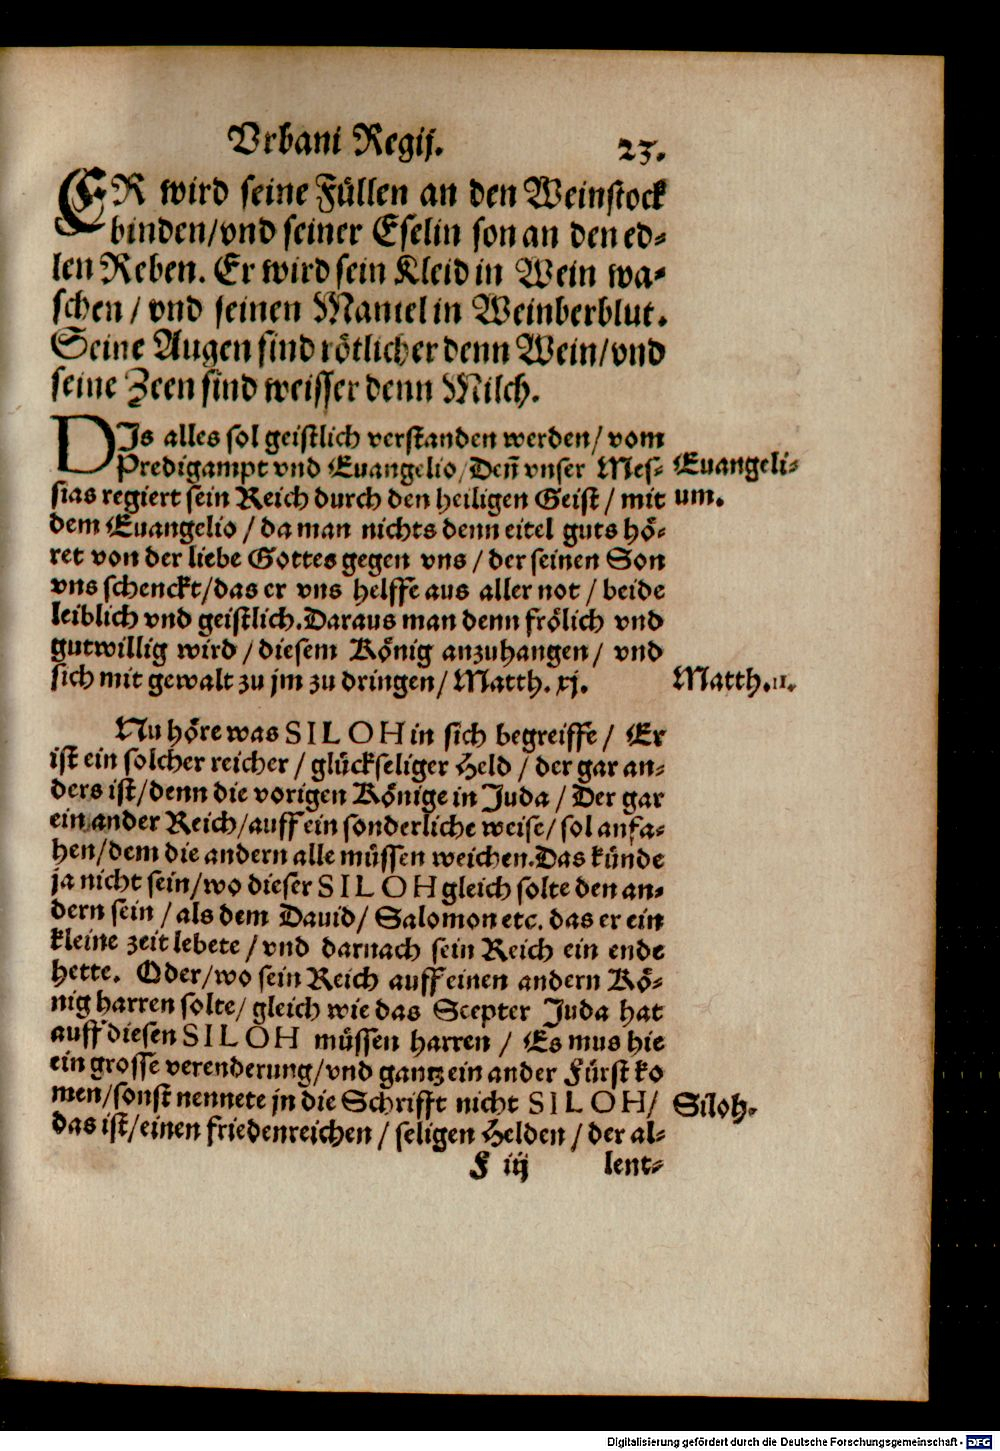 Vrbani Regij.
23.
ER wird seine Füllen an den Weinstock
binden/vnd seiner Eselin son an den ed-
len Reben. Er wird sein Kleid in Wein wa-
schen / vnd seinen Mantel in Weinberblut.
Seine Augen sind rötlicher denn Wein/vnd
seine Zeen sind weisser denn Milch.
DJs alles sol geistlich verstanden werden/ vom
Predigampt vnd Euangelio/Deñ vnser Mes-
Euangeli-
sias regiert sein Reich durch den heiligen Geist / mit
um.
dem Euangelio / da man nichts denn eitel guts hö-
ret von der liebe Gottes gegen vns / der seinen Son
vns schenckt/das er vns helffe aus aller not / beide
leiblich vnd geistlich. Daraus man denn frölich vnd
gutwillig wird / diesem König anzuhangen / vnd
sich mit gewalt zu jm zu dringen/ Matth. xj.
Matth.11.
Nu höre was SILOH in sich begreiffe / Er
ist ein solcher reicher / glückseliger Held / der gar an-
ders ist/denn die vorigen Könige in Juda / Der gar
ein ander Reich/auff ein sonderliche weise/ sol anfa-
hen/dem die andern alle müssen weichen. Das künde
ja nicht sein/wo dieser SILOH gleich solte den an-
dern sein / als dem Dauid/ Salomon etc. das er ein
kleine zeit lebete / vnd darnach sein Reich ein ende
hette. Oder/wo sein Reich auff einen andern Kö-
nig harren solte/ gleich wie das Scepter Juda hat
auff diesen SILOH müssen harren / Es mus hie
ein grosse verenderung/vnd gantz ein ander Fürst ko
men/sonst nennete jn die Schrifft nicht SILOH/
Siloh.
das ist/einen friedenreichen / seligen Helden / der al-
F iij
lent-
Digitalisierung gefördert durch die Deutsche Forschungsgemeinschaft - DFG